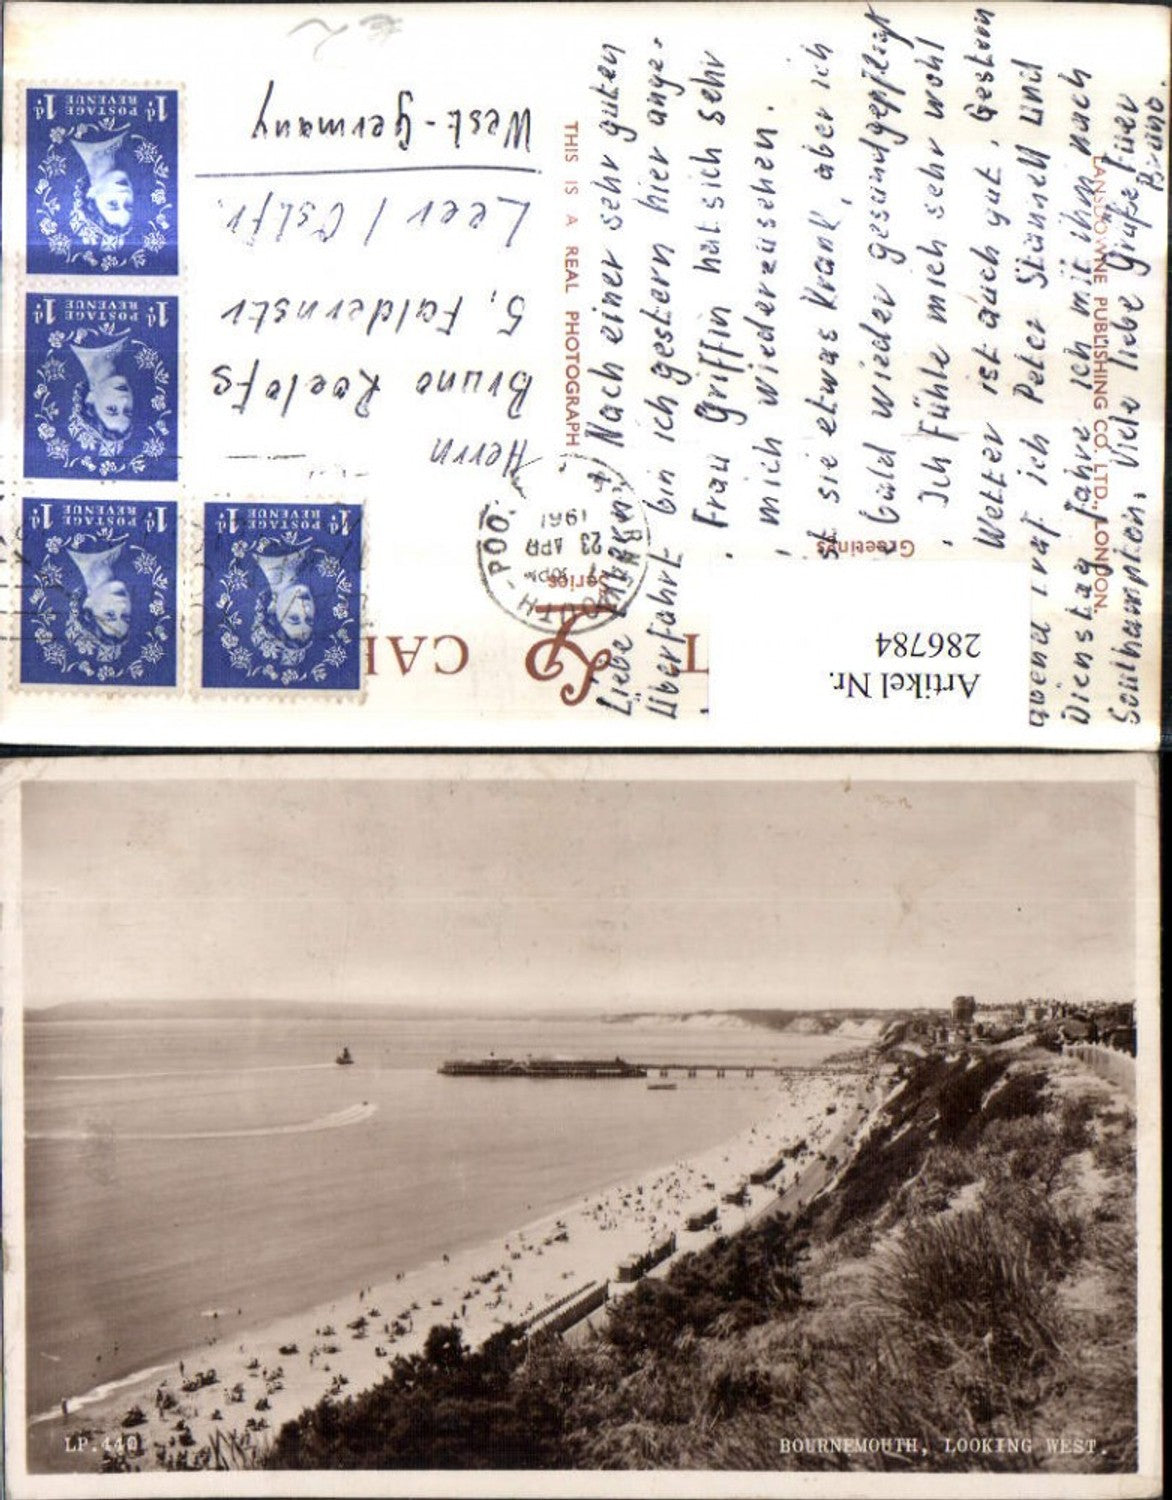 West-Germany
Leer / Ostfr.
5, Faldernstr
Bruno Roelofs
Herrn
THIS IS A REAL PHOTOGRAPH
POSTAGE
REVENUE
1d. 1d.
POSTAGE
REVENUE
1d. 1d.
POSTAGE
REVENUE
1d. 1d.
POSTAGE
REVENUE
1d. 1d.
23 APR
1961
LP
Series
Greetings
LANSDOWNE PUBLISHING CO. LTD., LONDON.
Artikel Nr.
286784
Liebe Nach einer sehr guten
Überfahrt bin ich gestern hier ange-
Frau Griffin hat sich sehr
mich wiederzusehen.
sie etwas krank, aber ich
bald wieder gesund gepflegt
Ich fühle mich sehr wohl
Wetter ist auch gut. Gestern
abend traf ich Peter Stannell und
Dienstag fahre ich mit ihm nach
Southampton. Viele liebe Grüße Euer
Bruno.
LP.440
BOURNEMOUTH, LOOKING WEST.